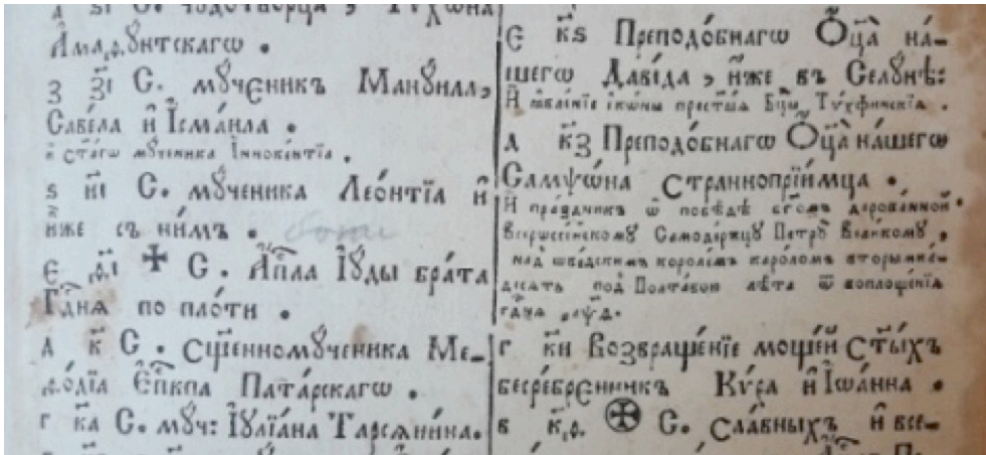 д ѕі С. чудотворца , Тѵхѡна
А҆маѳꙋнтскагѡ .
з зі С. мꙋченикъ Манꙋила,
Саве́ла и҆ І҆сма́ила .
и ст҃агѡ мꙋченика Інноке́нтїа .
ѕ и҃і С. мꙋченика Лео́нтїа и҆
и҆же съ ни́мъ .
є ѳ҃і ✠ С. А҆пⷭ҇ла І҆ꙋды бра́та
Гдⷭ҇ня по пло́ти .
а к҃ С . Сщ҃енномꙋченика Ме-
ѳо́дїа Е҆пⷭ҇кпа Пата́рскагѡ .
г к҃а С. мꙋч: І҆ꙋлїа́на Тарсѧни́на.
є к҃ѕ Преподо́бнагѡ Ѻ҆ц҃а̀ на́-
шегѡ Даві́да , и҆́же въ Селꙋ́нѣ:
И҆ ꙗ҆вле́нїе їкѡ́ны прест҃ы́ѧ Бц҃ы Тѵ́хфинскїѧ .
д к҃з Преподо́бнагѡ Ѻ҆ц҃а̀ на́шегѡ
Самѱѡ́на Страннопрїи́мца .
И҆ пра́здникъ ѿ побѣ́дѣ бг҃омъ дарова́нной
Всерѡссі́йскомꙋ Самоде́ржцꙋ Петрꙋ̀ Вели́комꙋ ,
над̾ шве́дскимъ короле́мъ ка́роломъ вторымна́-
десѧть под̾ Полта́вою лѣ́та ѿ воплоще́нїѧ
гдⷭ҇нѧ ҂аѱѳ.
г к҃и Возвраще́нїе моще́й Ст҃ы́хъ
бесре́бреникъ Кѵ́ра и҆ І҆ѡа́нна .
в к҃ѳ ✠ С. сла́вныхъ и҆ все-